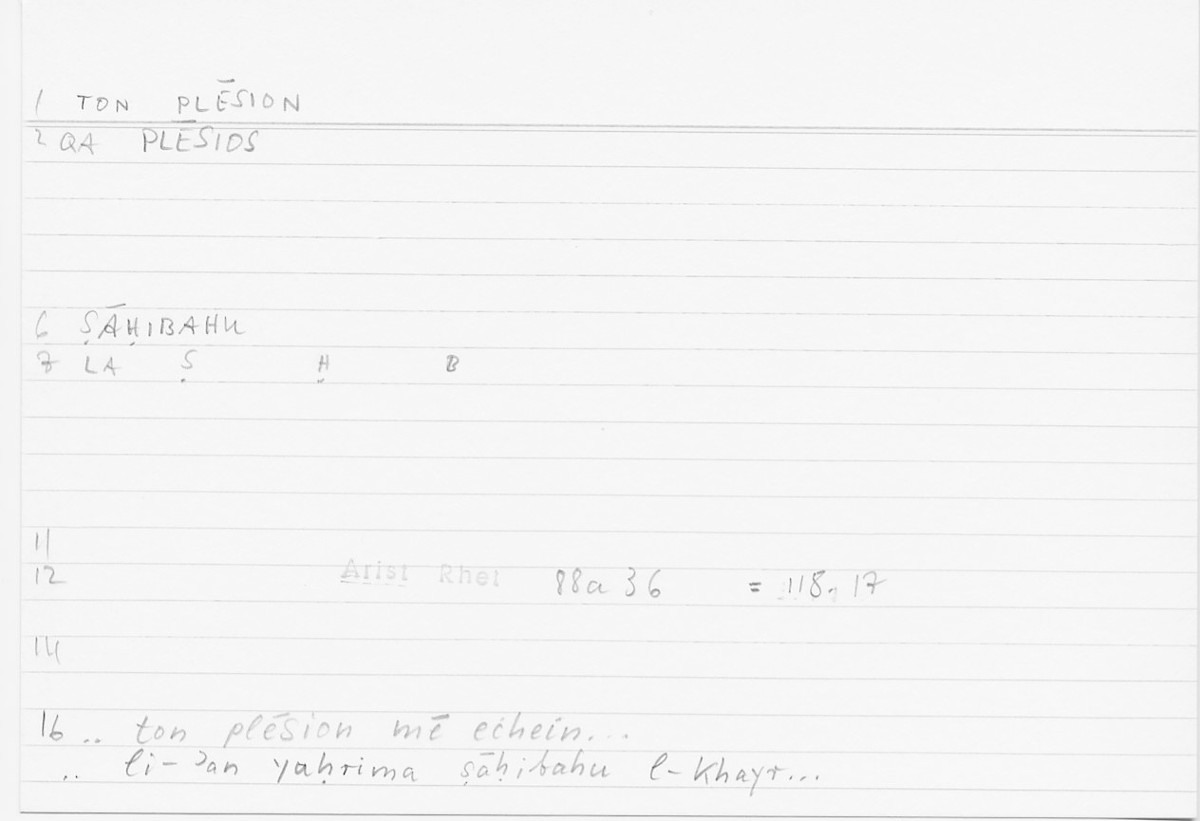 1 TON PLĒSION
2 QA PLĒSIOS
6 ṢĀḤIBAHU
7 LA Ṣ Ḥ B
11
12 Arist Rhet 88a 36 = 118, 17
14
16 .. ton plēsion mē echein...
.. li-ʾan yaḥrima ṣāḥibahu l-khayr...